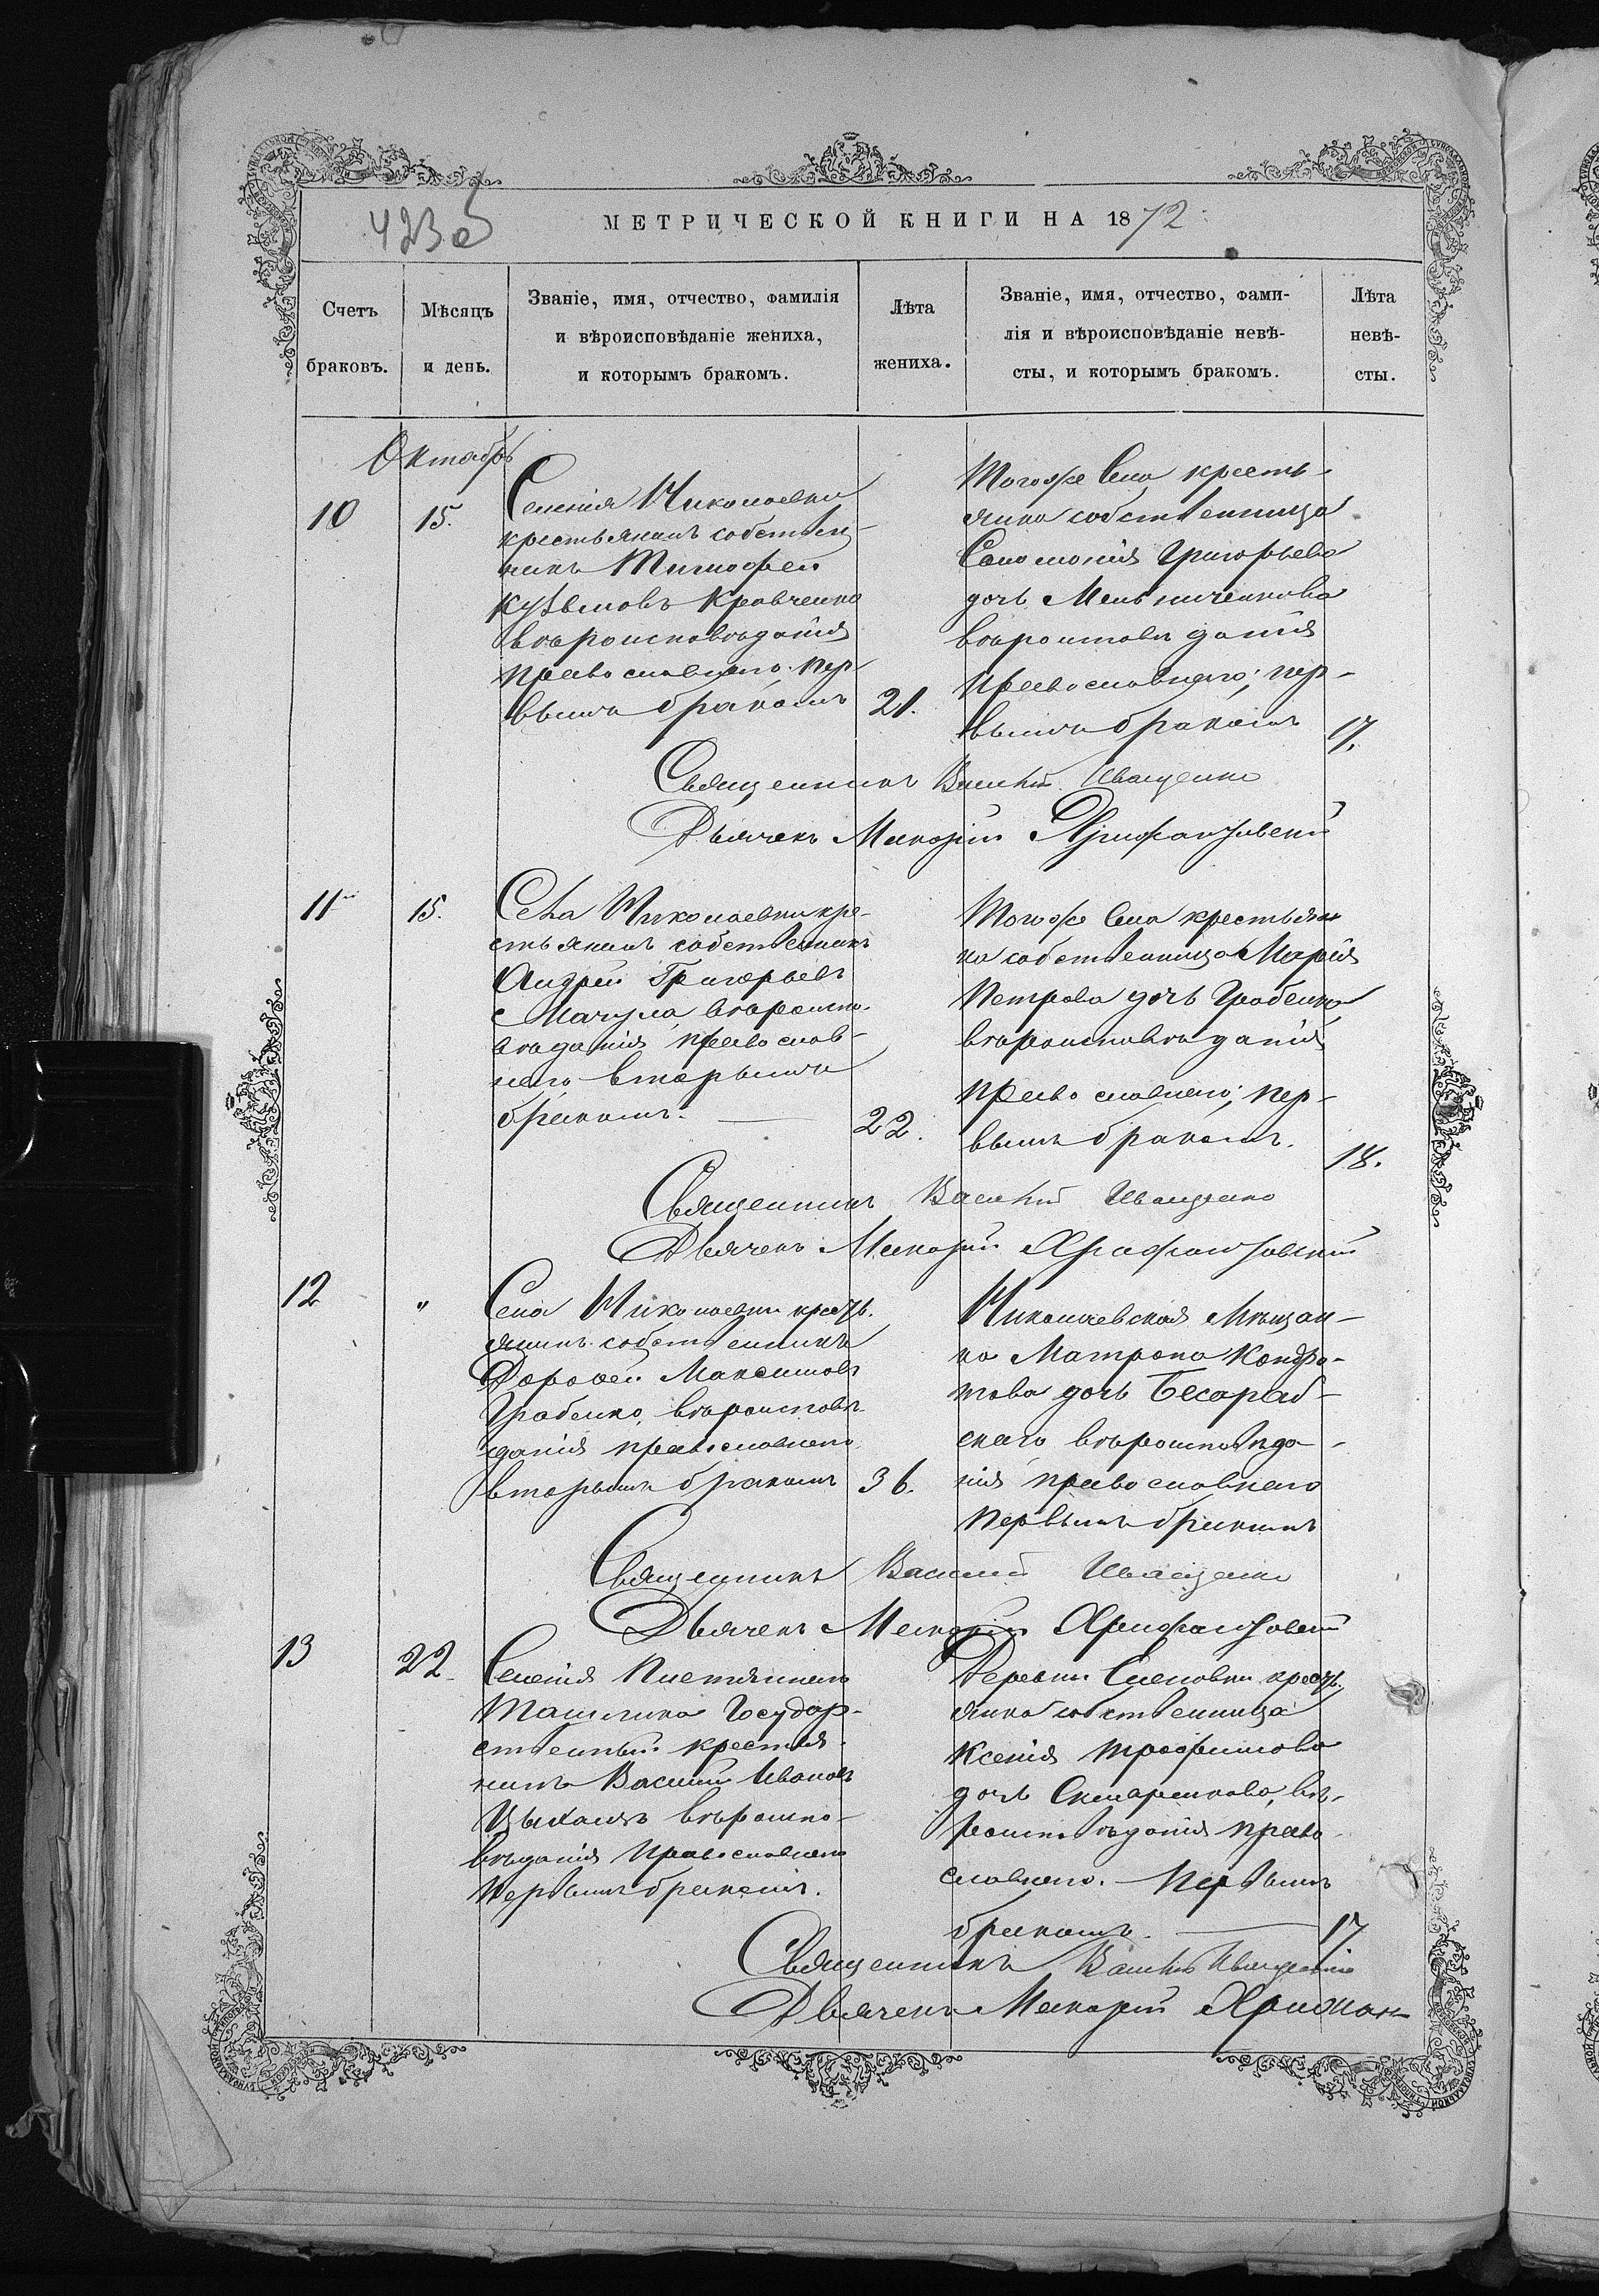 423 об
МЕТРИЧЕСКОЙ КНИГИ НА 1872
Счетъ браковъ.
Мѣсяцъ и день.
Званіе, имя, отчество, фамилія
и вѣроисповѣданіе жениха,
и которымъ бракомъ.
Лѣта жениха.
Званіе, имя, отчество, фами-
лія и вѣроисповѣданіе невѣ-
сты, и которымъ бракомъ.
Лѣта
невѣ-
сты.
Октябрь
10
15.
Селенія Николаевки
крестьянинъ собствен-
никъ Тимофей
Кузьмовъ Кравченко
вѣроисповѣданія
православнаго; пер
вымъ бракомъ
21.
Того же села кресть-
янка собственница
Соломонія Григорьева
дочь Мельниченкова
вѣроисповѣданія
православнаго; пер-
вымъ бракомъ
17.
Священникъ Василій Иващенко
Дьячекъ Макарій
11
15.
Села Николаевки кре-
стьянинъ собственникъ
Андрей Григорьевъ
Мачула, вѣроиспо-
вѣданія православ-
наго вторымъ
бракомъ. —
22.
Того же села крестьян
ка собственница Марія
Петрова дочь Грабенко,
вѣроисповѣданія
православнаго; пер-
вымъ бракомъ.
18.
Священникъ Василій Иващенко
Дьячекъ Макарій
12
"
Села Николаевки крест.
янинъ собственникъ
Дорофей Максимовъ
Грабенко, вѣроисповѣ
данія православнаго
вторымъ бракомъ
36.
Николаевская мѣщан-
ка Матрона Кондра-
това дочь Бесараб-
скаго вѣроисповѣда-
нія православнаго
первымъ бракомъ
Священникъ Василій Иващенко
Дьячекъ Макарій
13
22
Селенія
Ташлика Государ-
ственный крестья-
нинъ Василій Ивановъ
вѣроиспо-
вѣданія православнаго
первымъ бракомъ.
Деревни Еленовки крест.
янка собственница
Ксенія Трофимова
дочь вѣ-
роисповѣданія право-
славнаго. Первымъ
бракомъ. — 17
Священникъ Василій Иващенко
Дьячекъ Макарій